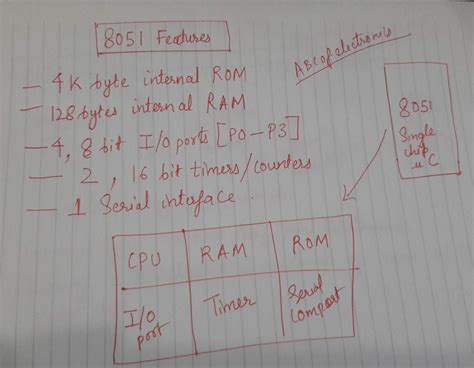 8051 Features
ABCofelectronics
— 4K byte internal ROM
— 128 bytes internal RAM
— 4, 8 bit I/O ports [P0-P3]
— 2, 16 bit timers/counters
— 1 Serial interface.
8051
Single
chip
uC
CPU
RAM
ROM
I/O
port
Timer
Serial
Comport